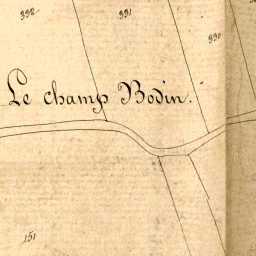 332
331
330
Le champ Bodin.
151